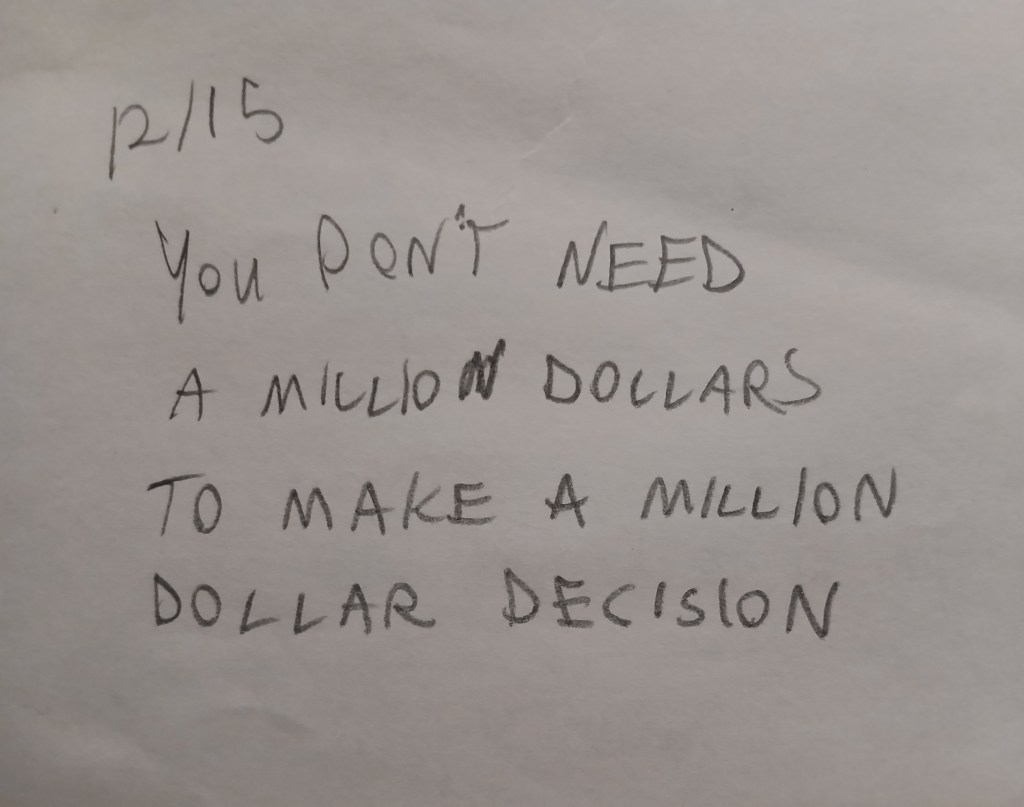 12/15
You DON'T NEED
A MILLION DOLLARS
TO MAKE A MILLION
DOLLAR DECISION